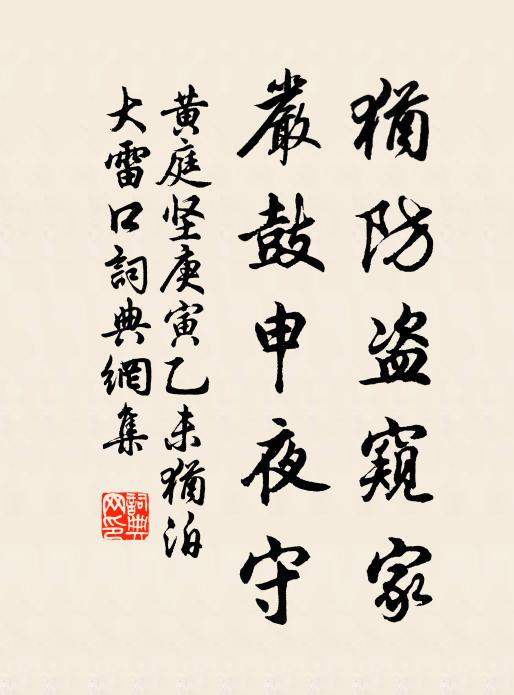 猶防盗窺家
嚴鼓申夜守
黄庭坚庚寅乙未猶泊
大雷口詞典網集
詞典网印